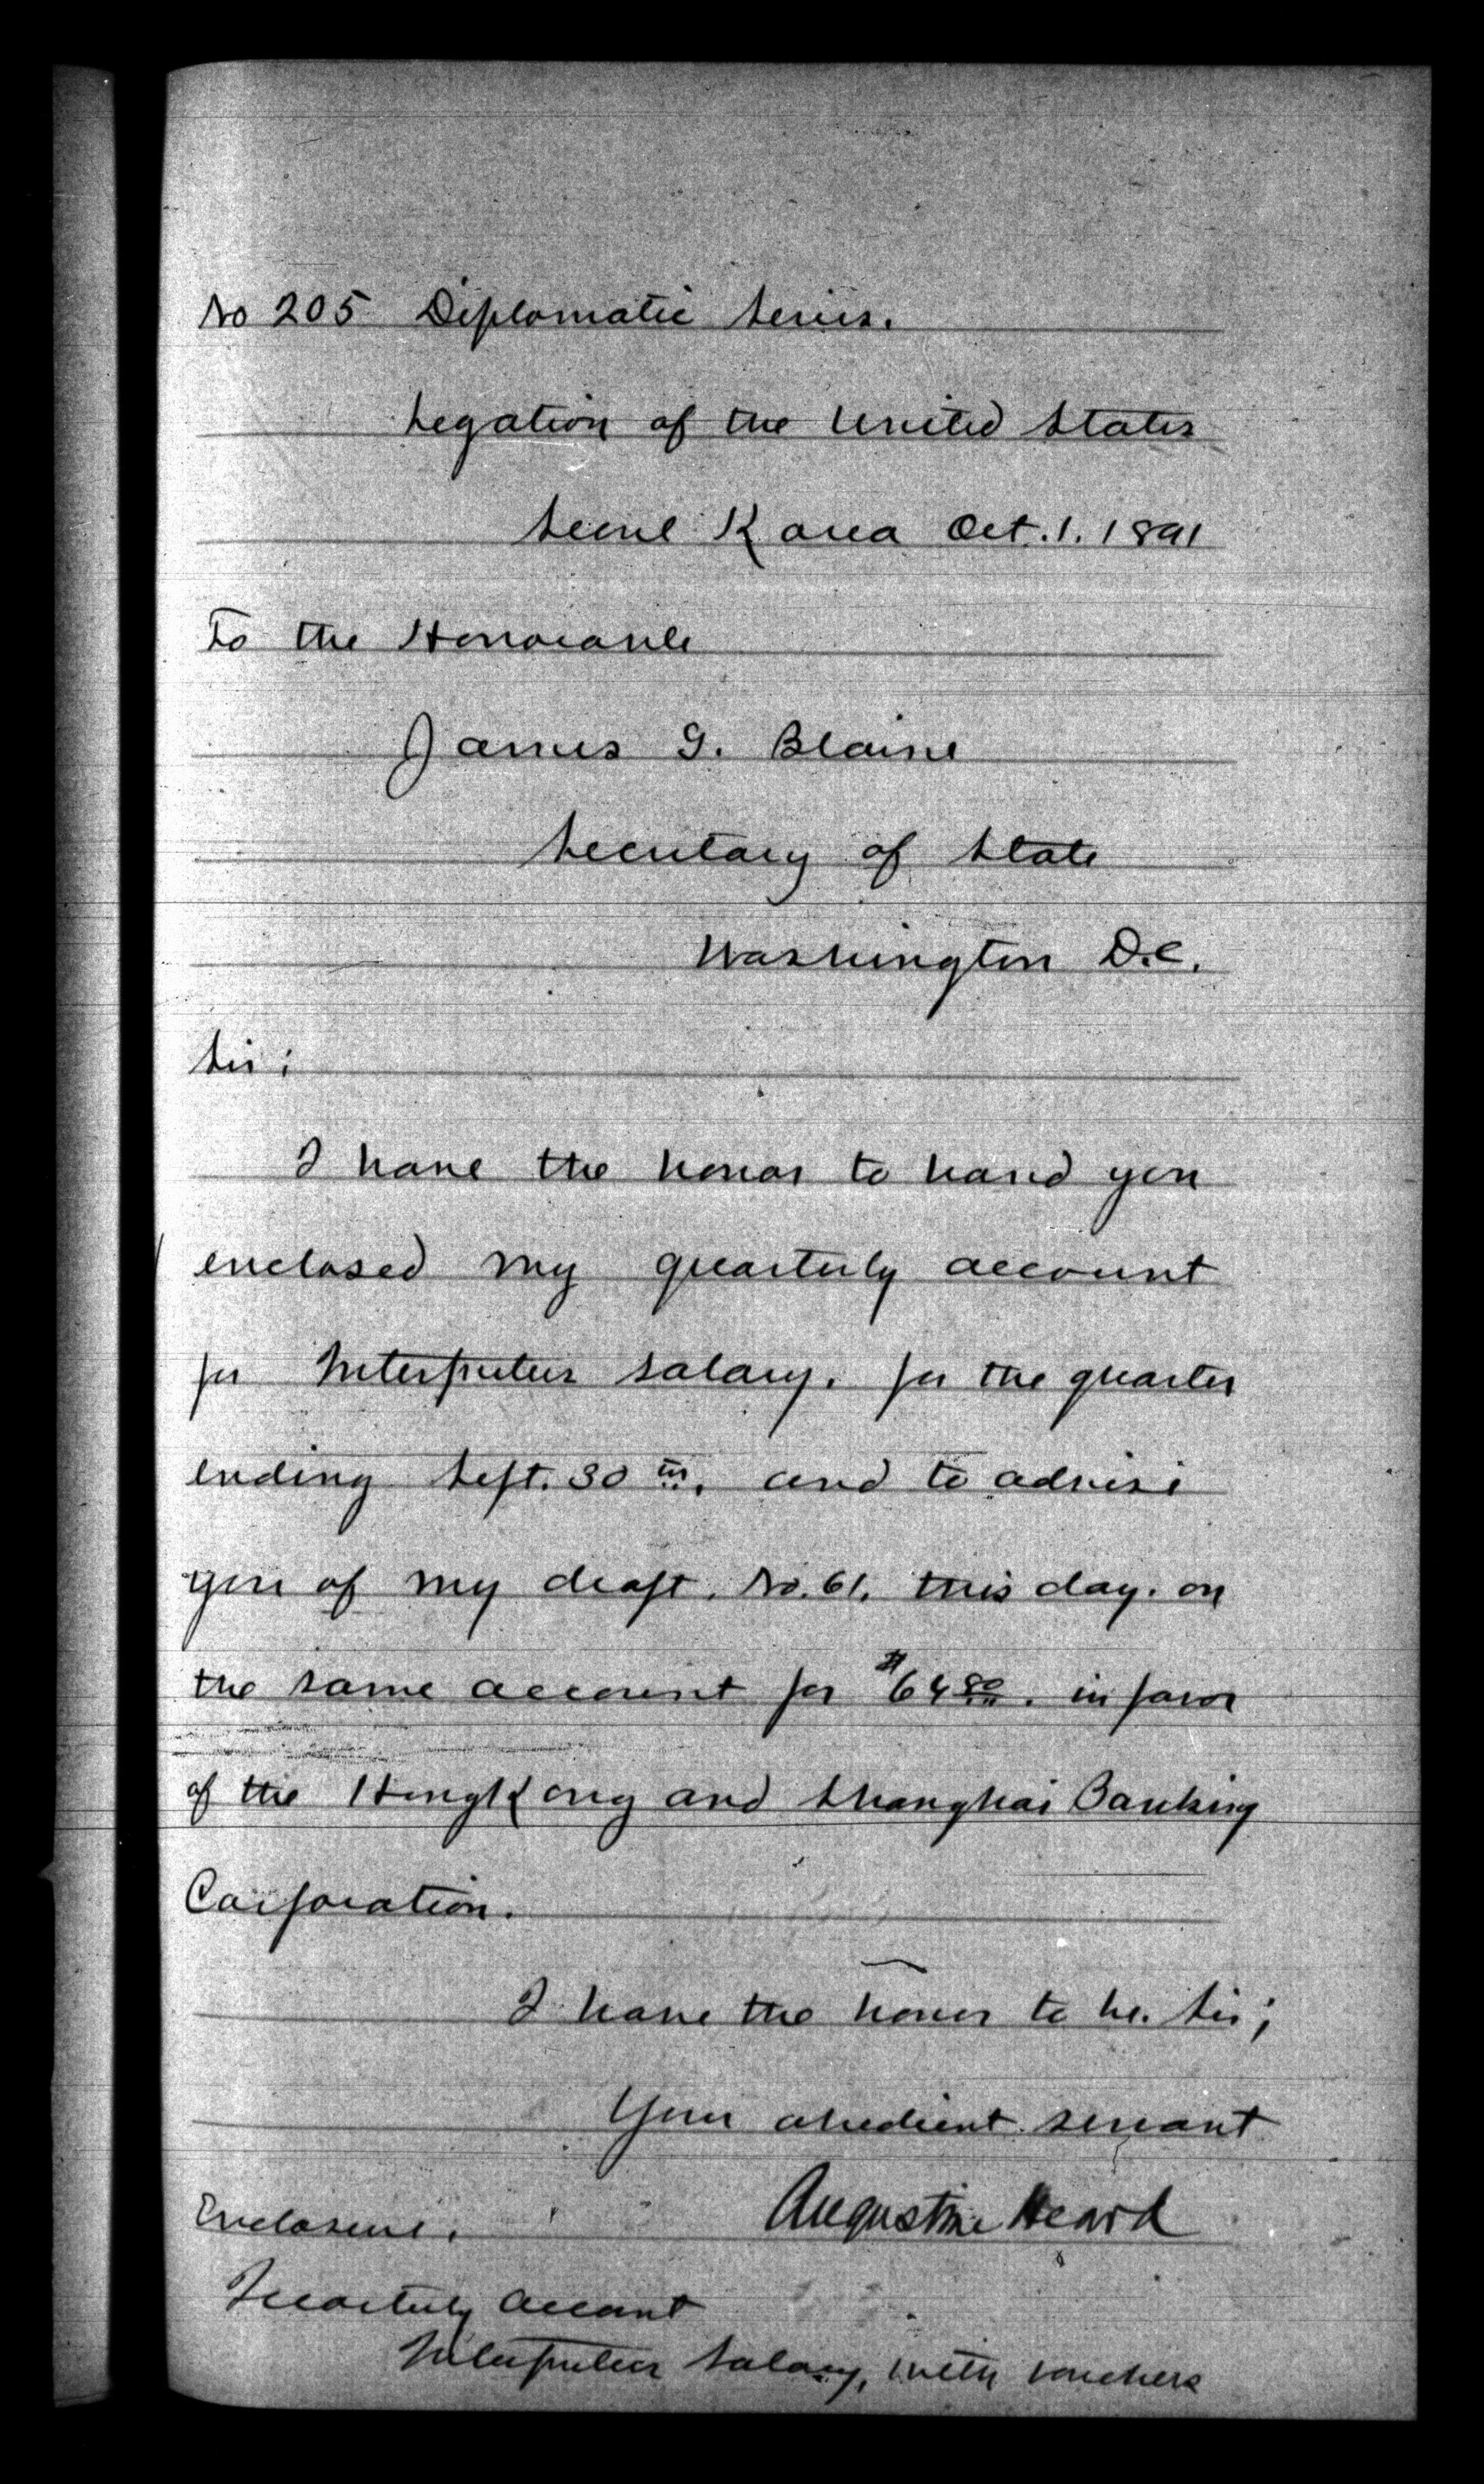 No 205 Diplomatic Series.
Legation of the United States
Seoul Korea Oct. 1. 1891
To the Honorable
James G. Blaine
Secretary of State
Washington D.C.
Sir:
I have the honor to hand you
enclosed my quarterly account
for Interpreters salary. for the quarter
ending Sept. 30th. and to advise
you of my draft. No. 61. this day. on
the same account for $64 80. in favor
of the HongKong and Shanghai Banking
Corporation.
I have the honor to be. Sir;
Your obedient servant
Augustine Heard
Enclosure.
Quarterly Account
Interpreters Salary, with vouchers